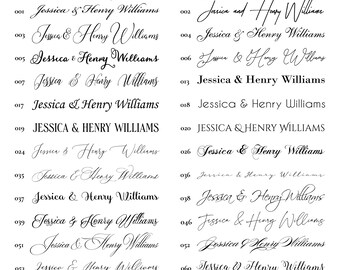 001 Jessica & Henry Williams
003 Jessica & Henry Williams
005 Jessica & Henry Williams
007 Jessica & Henry Williams
017 Jessica & Henry Williams
019 JESSICA & HENRY WILLIAMS
024 Jessica & Henry Williams
035 Jessica & Henry Williams
037 Jessica & Henry Williams
039 Jessica & Henry Williams
051 Jessica & Henry Williams
Jessica & Henry Williams
002 and Henry Williams
004 Jessica & Henry Williams
006 Jessica & Henry Williams
013 Jessica & Henry Williams
018 Jessica & Henry Williams
020 JESSICA & HENRY WILLIAMS
026 Jessica & Henry Williams
036 Jessica & Henry Williams
038 Jessica & Henry Williams
046 Jessica & Henry Williams
052 Jessica & Henry Williams
060 Jessica & Henry Williams